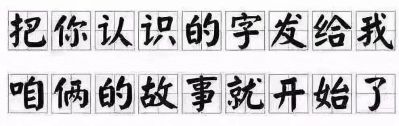 把你认识的字发给我
咱俩的故事就开始了